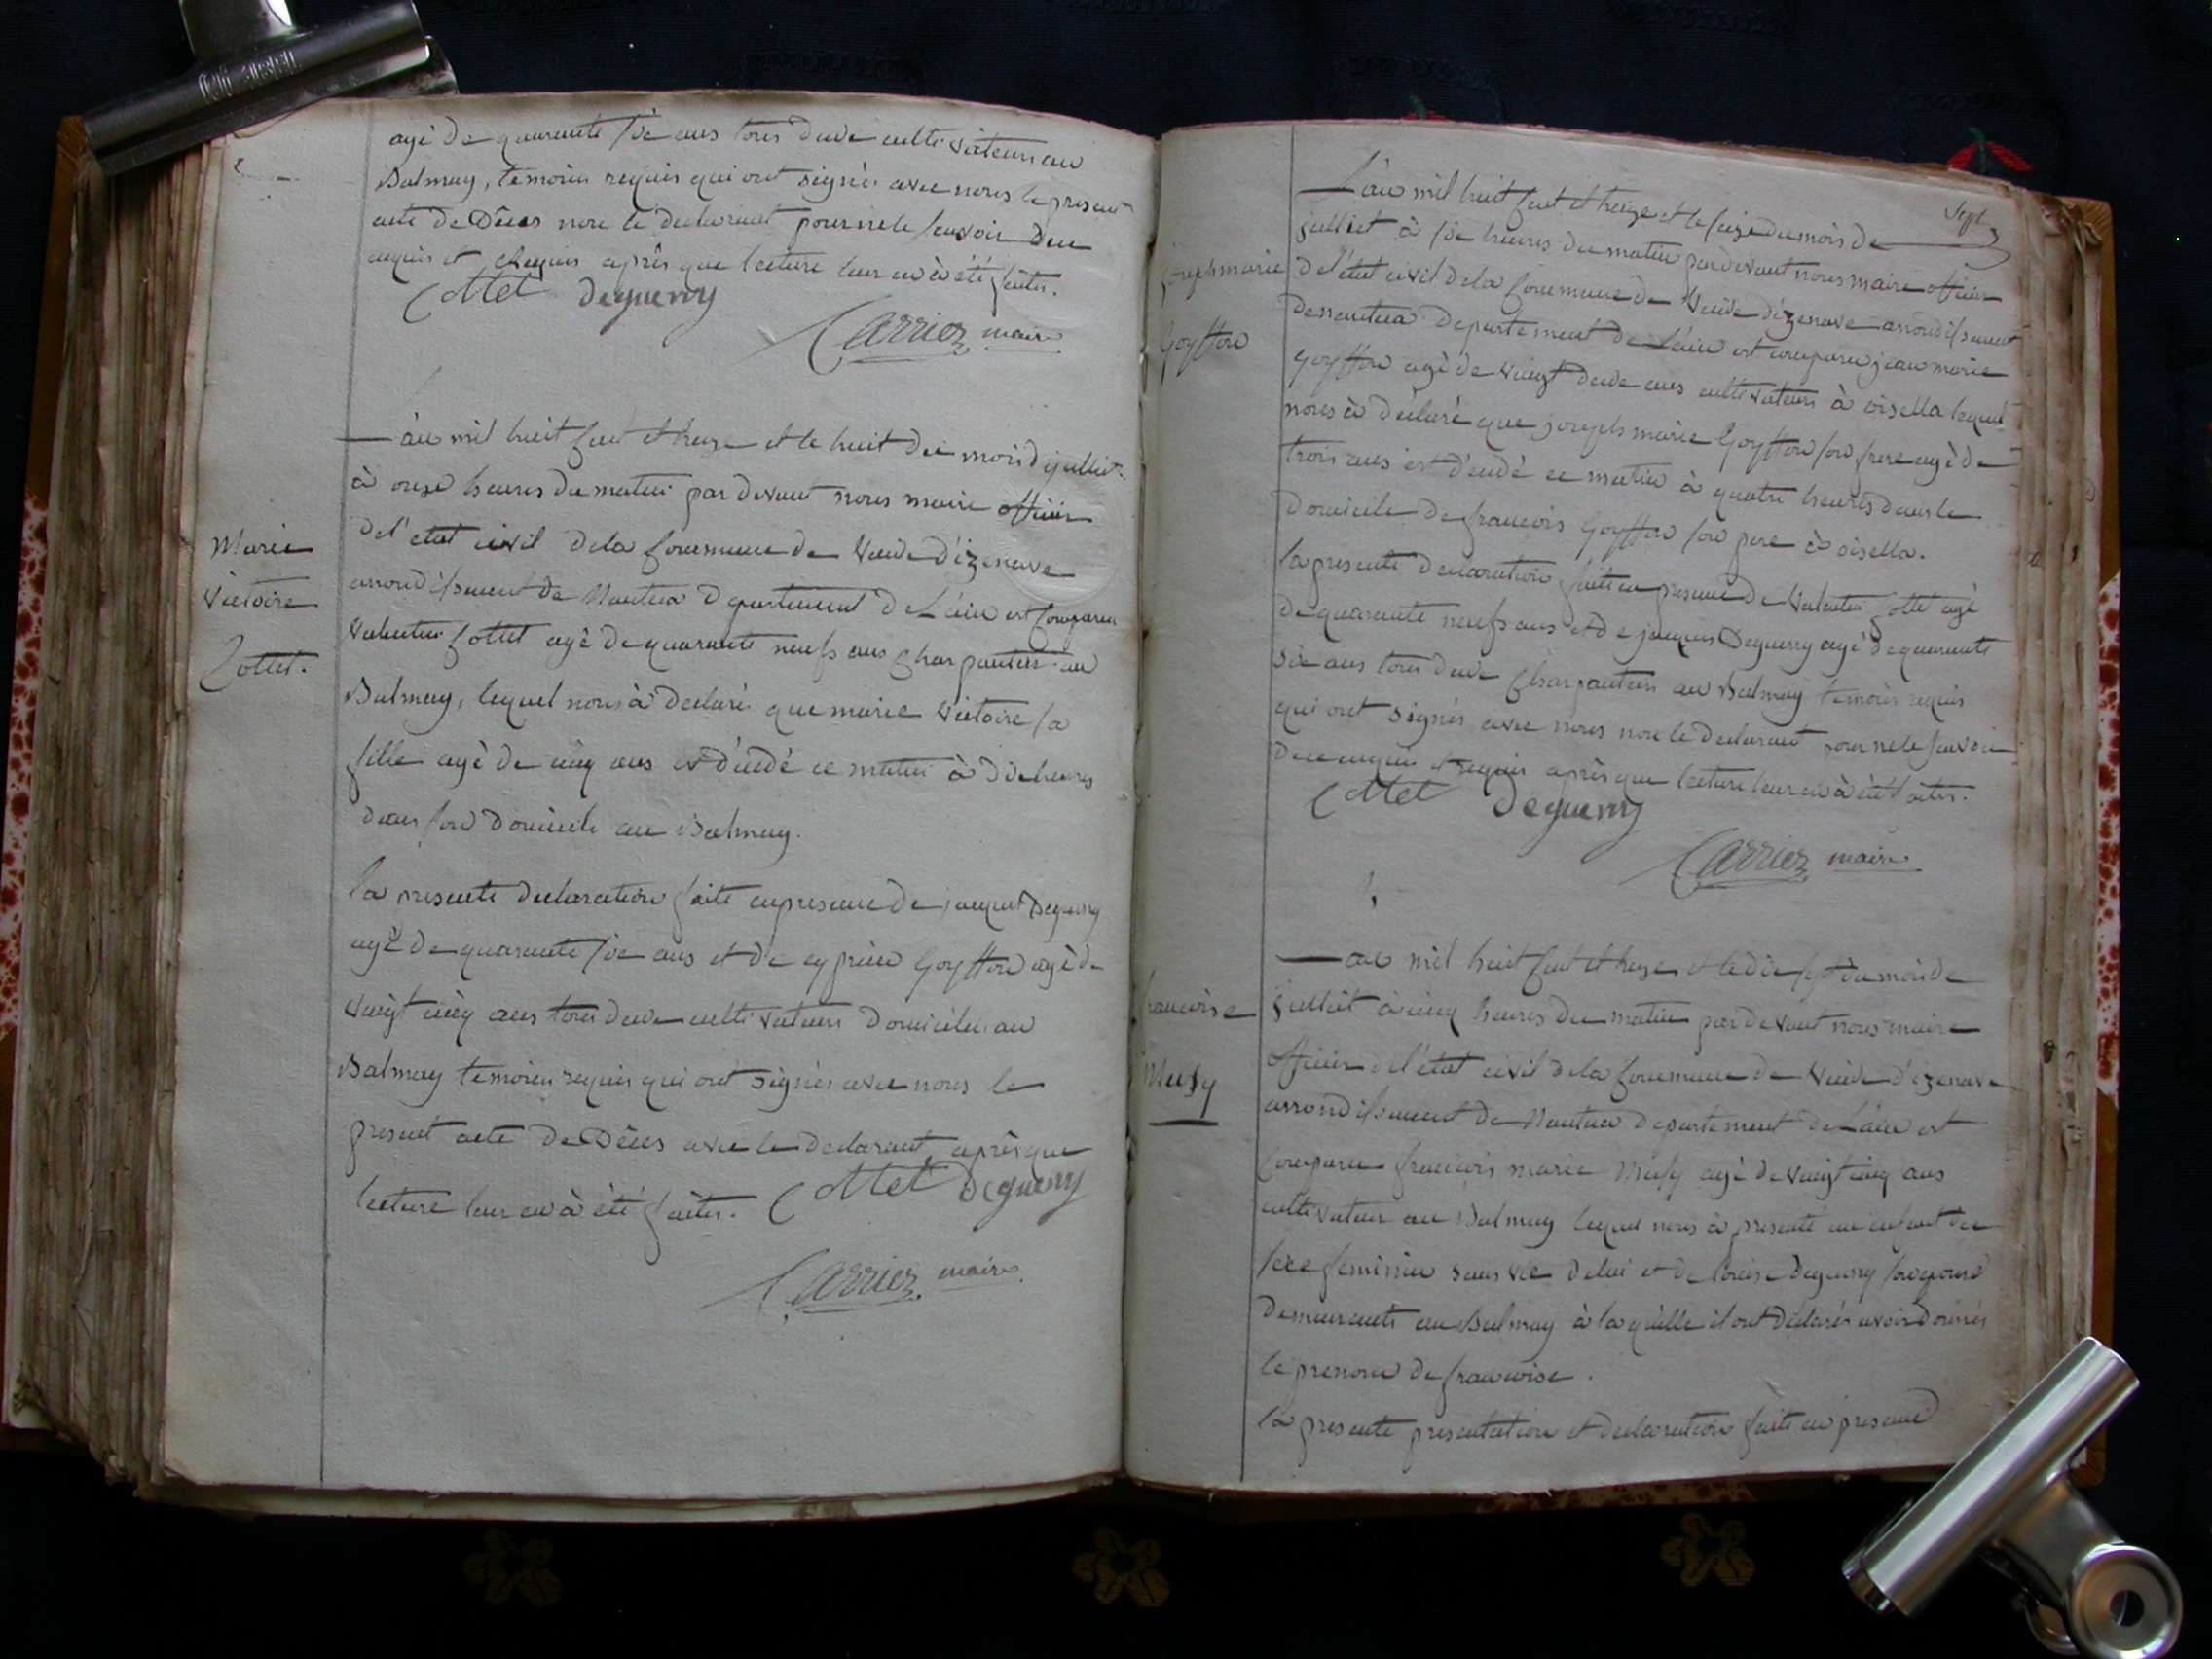 agé de quarante six ans tous deux cultivateurs au
Balmay, temoins requis qui ont signés avec nous le present
acte de Décés non le declarant pour ne le savoir de ce
enquis et requis après que lecture leur en à été faites.
Cottet Deguerry
Carrier maire
L'an mil huit cent et treize et le huit du mois d juilliet
à onze heures du matin par devant nous maire officier
del'etat civil dela commune de Vieude d'izenave
arrondissement de Nantua Departement de L'ain est comparu
Valentin Cottet agé de quarante neufs ans charpantier au
Balmay, lequel nous à declaré que marie Victoire sa
fille agé de cinq ans est décédé ce matin à dix heures
dans son domicile au Balmay.
la presente declaration faite en presence de jacques Deguerry
agé de quarante six ans et de cyprien Goyffon agé de
vingt cinq ans tous deux cultivateurs domiciliés au
Balmay temoins requis qui ont signés avec nous le
present acte de Décés avec le declarant après que
lecture leur en à été faites. Cottet Deguerry
Carrier maire
Marie
Victoire
Cottet.
Sept
L'an mil huit cent et treize et le seize du mois de
juilliet à six heures du matin par devant nous maire officier
de l'état civil dela commune de Vieude d'izenave arrondissement
de nantua departement de L'ain est comparu jean marie
Goyffon agé de vingt deux ans cultivateur à oisella lequel
nous à déclaré que joseph marie Goyffon son frere agé de
trois ans est décédé ce matin à quatre heures dans le
domicile de francois Goyffon son pere à oisella.
la presente declaration faite en presence de Valentin Cottet agé
de quarante neufs ans et de jacques Deguerry agé de quarante
six ans tous deux charpantiers au Balmay temoins requis
qui ont signés avec nous non le declarant pour ne le savoir
de ce enquis et requis après que lecture leur en à été faites.
Cottet Deguerry
Carrier maire
joseph marie
Goyffon
L'an mil huit cent et treize et le dix sept du mois de
juilliet à cinq heures du matin par devant nous maire
officier de l'état civil dela commune de Vieude d'izenave
arrondissement de Nantua departement de L'ain est
comparu francois marie Musy agé de vingt cinq ans
cultivateur au Balmay lequel nous à presenté un enfant du
sexe feminin sans vie de lui et de louise Deguerry son epouse
demeurants au Balmay à la quelle il ont déclarés avoir donnés
le prenom de francoise.
la presente presentation et declaration faite en presence
francoise
Musy